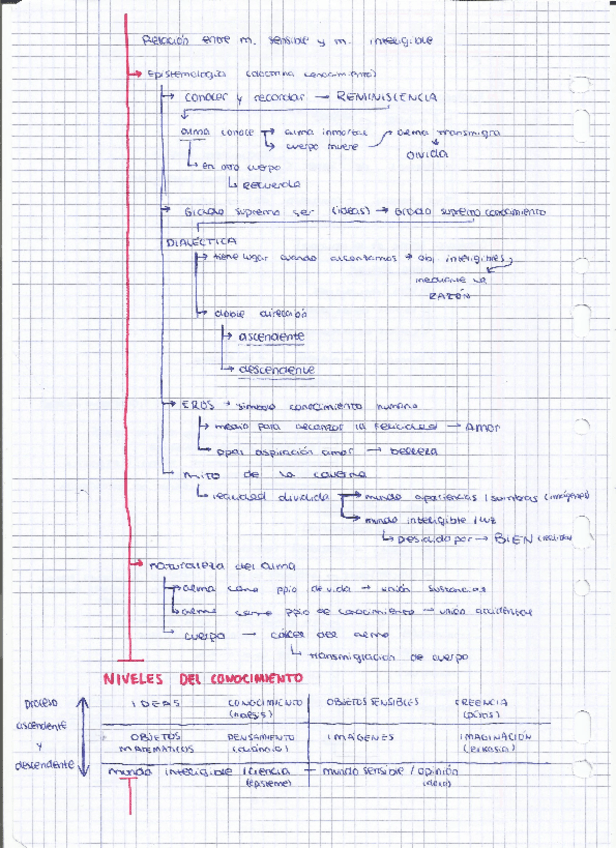 Relación entre m. sensible y m. inteligible
Epistemología (doctrina conocimiento)
conocer y recordar → REMINISCENCIA
alma conoce → alma inmortal → alma transmigra
→ cuerpo muere
olvida
en otro cuerpo
recuerda
Grado supremo ser (ideas) → Grado supremo conocimiento
DIALÉCTICA
→ tiene lugar cuando alcanzamos → obj. inteligibles,
mediante la
RAZÓN
→ doble dirección
→ ascendente
→ descendente
→ EROS → símbolo conocimiento humano
→ medio para alcanzar la felicidad → AMOR
→ aspiración amor → BELLEZA
mito de la caverna
realidad dividida → mundo apariencias / sombras (imágenes)
→ mundo inteligible / luz
→ presidido por → BIEN
→ naturaleza del alma
→ alma como ppio de vida → unión sustancial
→ alma como ppio de conocimiento → unión accidental
cuerpo → cárcel del alma
→ transmigración de cuerpo
NIVELES DEL CONOCIMIENTO
proceso
ascendente
y
descendente
IDEAS CONOCIMIENTO OBJETOS SENSIBLES CREENCIA
(noesis) (pistis)
OBJETOS PENSAMIENTO IMÁGENES IMAGINACIÓN
MATEMÁTICOS (dianoia) (eikasia)
mundo inteligible / ciencia mundo sensible / opinión
(episteme) (doxa)